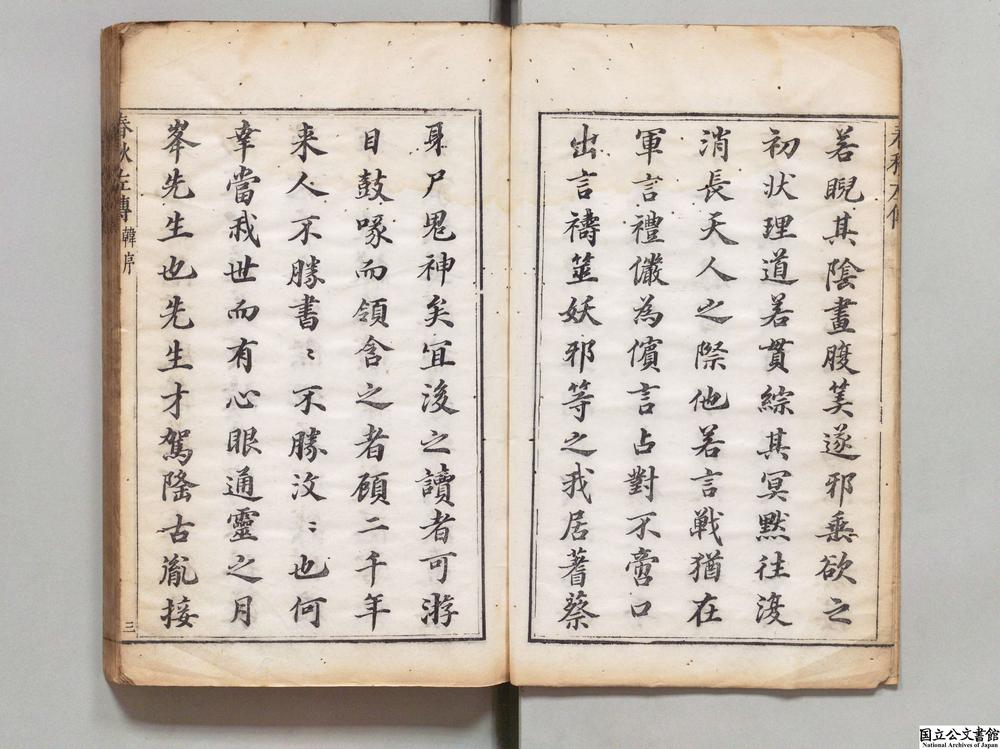 若睨其陰畫腹笑遂邪乗欲之
初状理道若貫綜其冥黙往復
消長天人之際他若言戦猶在
軍言禮儼為儐言占對不啻口
出言禱筮妖邪等之我居蓍蔡
身尸鬼神矣宜後之讀者可游
目鼓喙而領含之者顧二千年
来人不勝書〻不勝汶〻也何
幸當我世而有心眼通靈之月
峯先生也先生才駕隆古胤接
春秋左傳 韓序
三
国立公文書館
National Archives of Japan